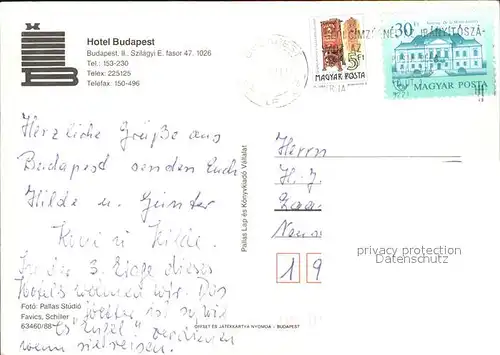 Hotel Budapest
Budapest, II., Szilágyi E. fasor 47. 1026
Tel.: 153-230
Telex: 225125
Telefax: 150-496
MAGYAR POSTA
5 Ft
30 Ft
MAGYAR POSTA
Herzliche Grüße aus
Budapest senden Euch
Hilde u. Günter
In der 3. Etage dieses
Hotels wohnen wir. Das
Wetter ist so, wie
es "Engel" verdienen
wenn sie reisen.
Foto: Pallas Stúdió
Favics, Schiller
63460/88
Pallas Lap és Könyvkiadó Vállalat
OFFSET ÉS JÁTÉKKÁRTYA NYOMDA - BUDAPEST
Herrn
H. J.
1 9
privacy protection
Datenschutz